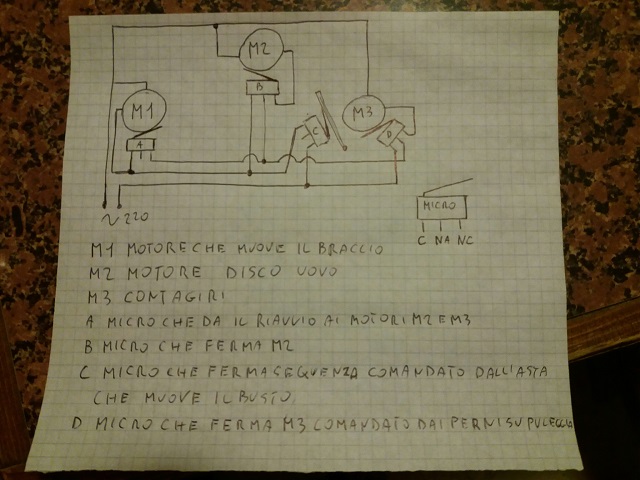 M2
B
M1
M3
C
D
A
MICRO
C NA NC
~ 220
M1 MOTORE CHE MUOVE IL BRACCIO
M2 MOTORE DISCO UOVO
M3 CONTAGIRI
A MICRO CHE DA IL RIAVVIO AI MOTORI M2 E M3
B MICRO CHE FERMA M2
C MICRO CHE FERMA SEQUENZA COMANDATO DALL'ASTA
CHE MUOVE IL BUSTO
D MICRO CHE FERMA M3 COMANDATO DAI PERNI SU PULEGGIA